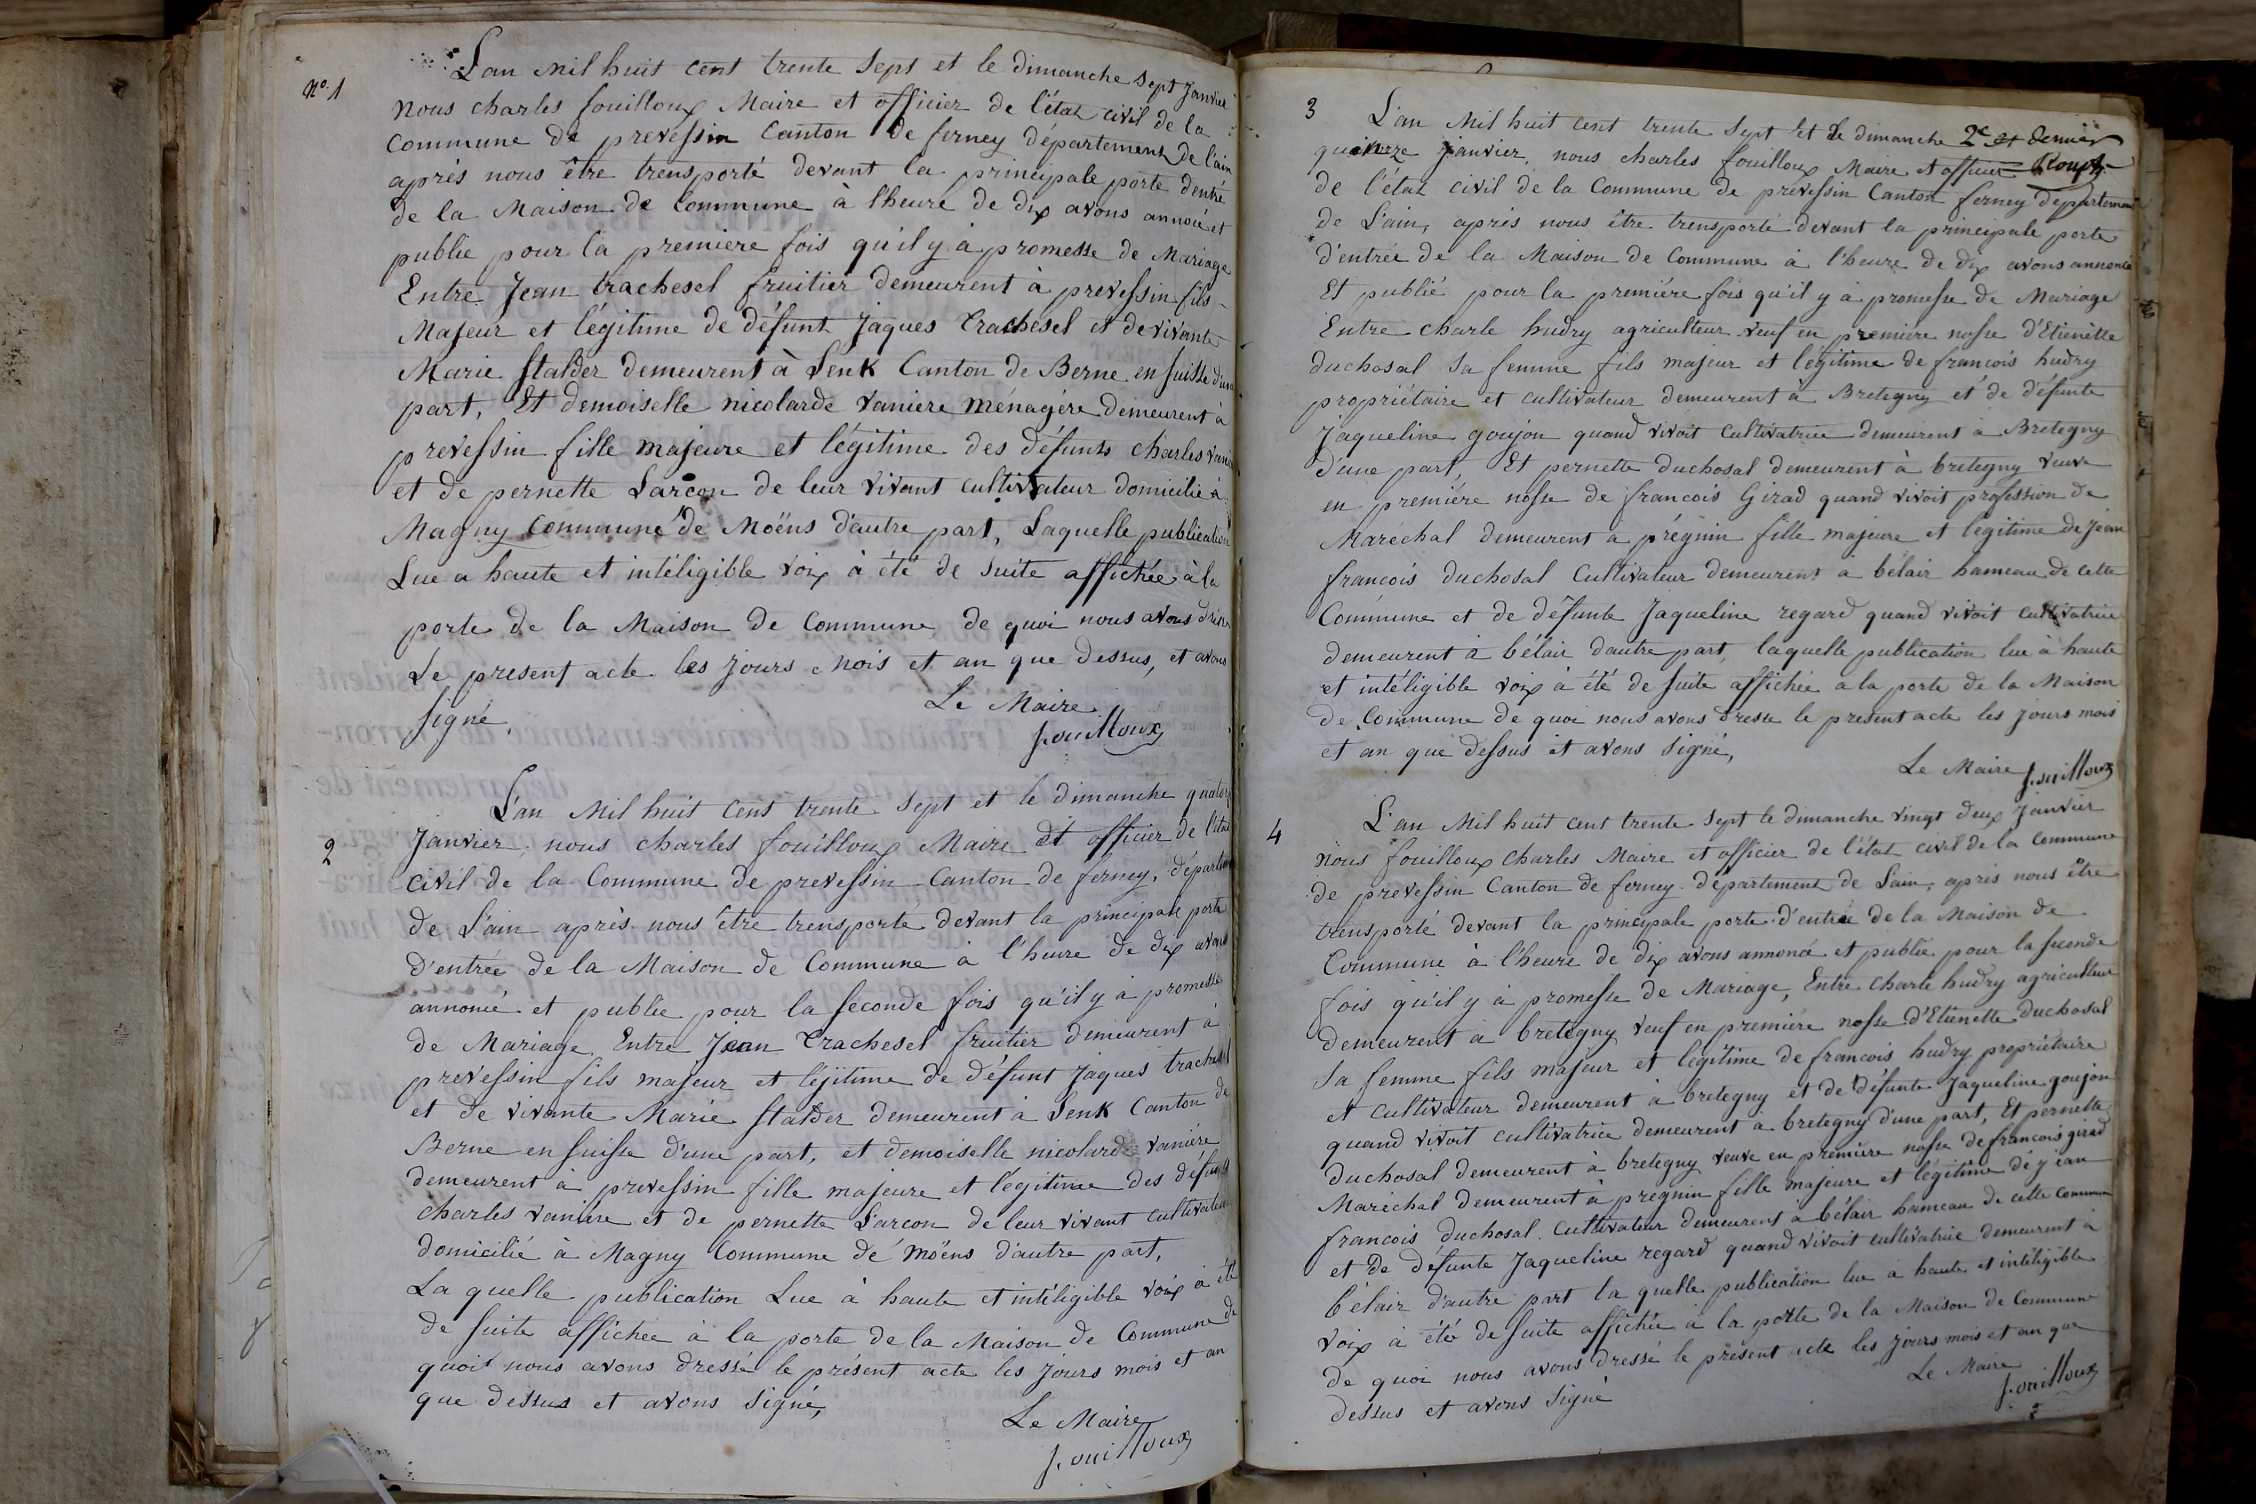 N°. 1
L'an mil huit cent trente sept et le dimanche sept janvier
nous charles fouilloux Maire et officier de l'état civil de la
Commune de prevessin Canton de ferney département de l'ain
après nous être trensporté devant la principale porte d'entré
de la Maison de Commune à l'heure de dix avons annoncé et
publie pour la premiere fois qu'il y à promesse de Mariage
Entre Jean trachesel fruitier demeurent à prevessin fils
Majeur et légitime de défunt Jaques Trachesel et de vivante
Marie Stalder demeurent à Lenk Canton de Berne en suisse d'une
part, Et demoiselle nicolarde vaniere ménagére demeurent à
prevessin fille majeure et légitime des défunts charles vaniere
et de pernette Larcon de leur vivant cultivateur domicilié à
Magny Commune de Moëns d'autre part, Laquelle publication
Lue a haute et intéligible voix à été de suite affichée à la
porte de la Maison de Commune de quoi nous avons
Le present acte les jours Mois et an que dessus, et avons
signé.
Le Maire
fouilloux
2
L'an Mil huit cent trente sept et le dimanche quatorze
Janvier, nous charles fouilloux Maire et officier de l'état
civil de la Commune de prevessin Canton de ferney, département
de L'ain après nous être trensporté devant la principale porte
d'entrée de la Maison de Commune à l'heure de dix avons
annoncé et publie pour la seconde fois qu'il y à promesse
de Mariage Entre Jean Trachesel fruitier demeurent à
prevessin fils majeur et léjitime de défunt Jaques trachesel
et de vivante Marie Stalder demeurent à Lenk Canton de
Berne en suisse d'une part, et demoiselle nicolarde vaniére
demeurent à prevessin fille majeure et légitime des défunts
charles vaniere et de pernette Larcon de leur vivant cultivateur
domicilié à Magny Commune de moëns d'autre part,
La quelle publication Lue à haute et intéligible voix à été
de suite affichée à la porte de la Maison de Commune de
quoit nous avons dressé le présent acte les jours mois et an
que dessus et avons signé,
Le Maire
fouilloux
3
L'an Mil huit cent trente sept et le dimanche 2e et dernier
quinze janvier, nous charles fouilloux Maire et officier
de l'état civil de la Commune de prévessin Canton ferney département
de L'ain, après nous être trensporté devant la principale porte
d'entrée de la Maison de Commune à l'heure de dix avons annoncé
Et publié pour la premiére fois qu'il y à promesse de Mariage
Entre charle hudry agriculteur veuf en premiere nosse d'Etienette
duchosal sa femme fils majeur et légitime de francois hudry
propriétaire et cultivateur demeurent à Bretegny et de défunte
Jaqueline goujon quand vivoit Cultivatrice demeurent à Bretegny
d'une part, Et pernette duchosal demeurent à bretegny veuve
en premiére nosse de francois Girad quand vivoit profession de
Maréchal demeurent a prégnin fille majeure et legitime de Jean
francois duchosal Cultivateur demeurent a bélair hameau de cette
Commune et de défunte Jaqueline regard quand vivoit cultivatrice
demeurent à bélair d'autre part, laquelle publication lue à haute
et intéligible voix à été de suite affichée a la porte de la Maison
de Commune de quoi nous avons dresse le present acte les jours mois
et an que dessus et avons signé,
Le Maire fouilloux
4
L'an Mil huit cent trente sept le dimanche vingt deux Janvier
nous fouilloux charles Maire et officier de l'état civil de la Commune
de prevessin Canton de ferney département de Lain, après nous être
trensporté devant la principale porte d'entrée de la Maison de
Commune à l'heure de dix avons annoncé et publie pour la seconde
fois qu'il y à promesse de Mariage, Entre charle hudry agriculteur
demeurent a bretegny veuf en premiére nosse d'Etienette duchosal
Sa femme fils majeur et légitime de francois hudry propriétaire
et cultivateur demeurent à bretegny et de défunte Jaqueline goujon
quand vivoit cultivatrice demeurent a bretegny d'une part, Et pernette
duchosal demeurent à bretegny veuve en premiere nosse de francois girad
Maréchal demeurent à pregnin fille majeure et légitime de jean
francois duchosal Cultivateur demeurent a bélair hameau de cette commune
et de défunte Jaqueline regard quand vivoit cultivatrice demeurent à
bélair d'autre part la quelle publication lue à haute et intéligible
voix à été de suite affichée à la porte de la Maison de Commune
de quoi nous avons dressé le présent acte les jours mois et an que
dessus et avons signé
Le Maire
fouilloux